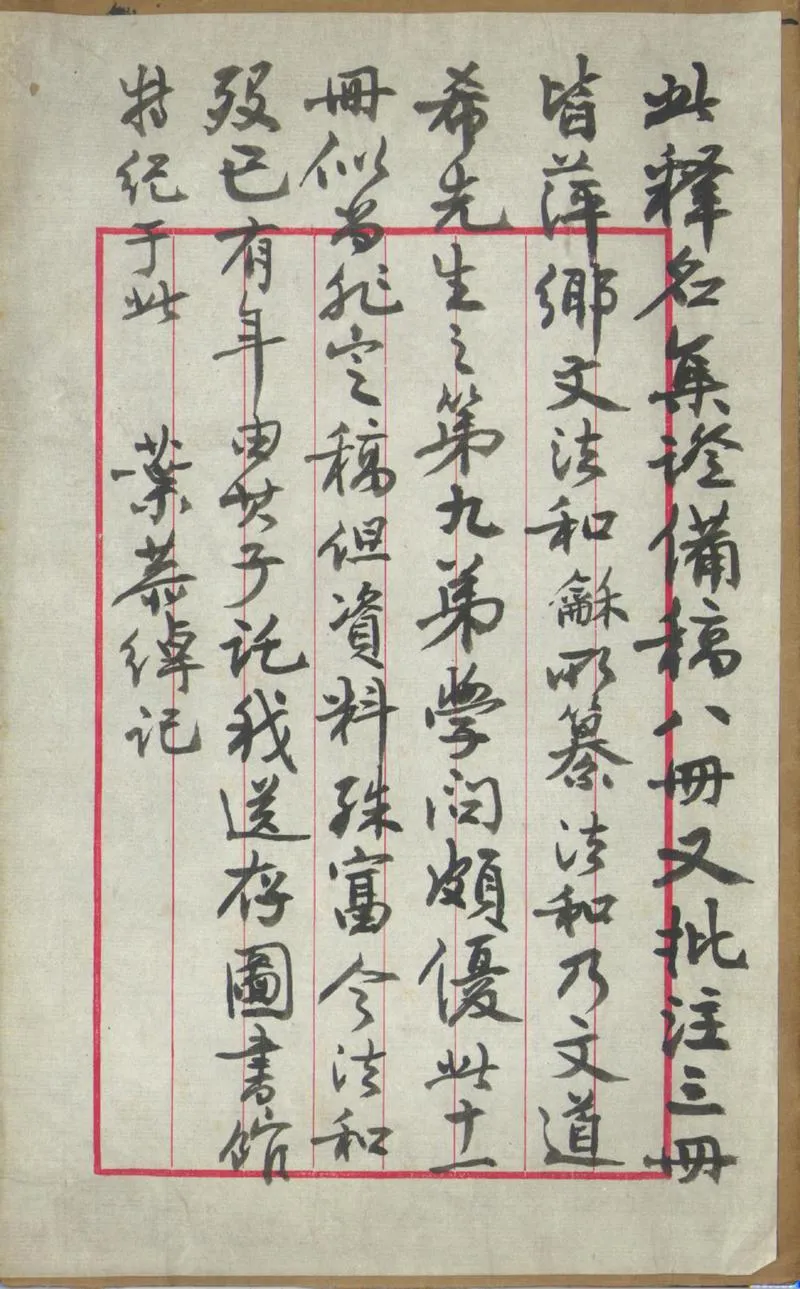 此釋名集證備稿八冊又批注三冊
皆萍鄉文法和龢所纂法和乃文道
希先生之第九弟學問頗優此十一
冊似尚非定稿但資料殊富今法和
歿已有年由其子託我送存圖書館
特紀于此 葉恭綽记